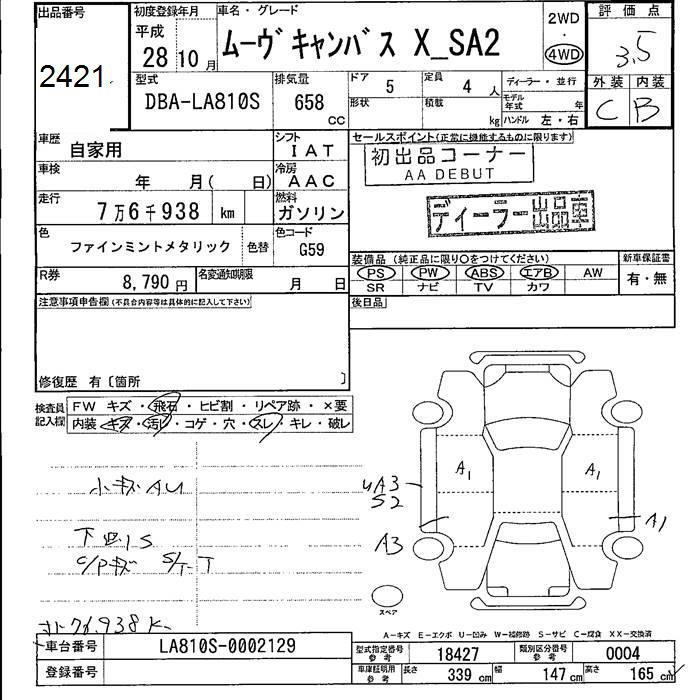 出品番号
2421
初度登録年月
平成
28 10 月
車名・グレード
ムーヴキャンバス X_SA2
2WD
・
4WD
評価点
3.5
外装 内装
C B
型式
DBA-LA810S
排気量
658 CC
ドア 5
形状
定員 4 人
積載 kg
ディーラー・並行
モデル年式 年
ハンドル 左・右
車歴 自家用
シフト IAT
車検 年 月( 日)
冷房 AAC
走行 7万6千938 km
燃料 ガソリン
色 ファインミントメタリック 色替
色コード G59
R券 8,790 円
名変通知期限 月 日
セールスポイント(正常に機能するものに限ります)
初出品コーナー
AA DEBUT
ディーラー出品車
装備品 (純正品に限り○をつけてください)
新車保証書
PS PW ABS エアB AW
SR ナビ TV カワ
有・無
後日品
注意事項申告欄(不具合内容等は具体的に記入して下さい)
修復歴 有〔箇所 〕
検査員記入欄
FW キズ・飛石・ヒビ割・リペア跡・×要
内装・キズ・汚レ・コゲ・穴・スレ・キレ・破レ
小キズAU
下回りS
C/Pキズ
76,938K
A1 A1
UA3
S2
A3
A1
スペア
A-キズ E-エクボ U-凹み W-補修跡 S-サビ C-腐食 XX-交換済
車台番号 LA810S-0002129
登録番号
型式指定番号参考 18427
類別区分番号参考 0004
車庫証明用参考 長さ 339 cm 幅 147 cm 高さ 165 cm